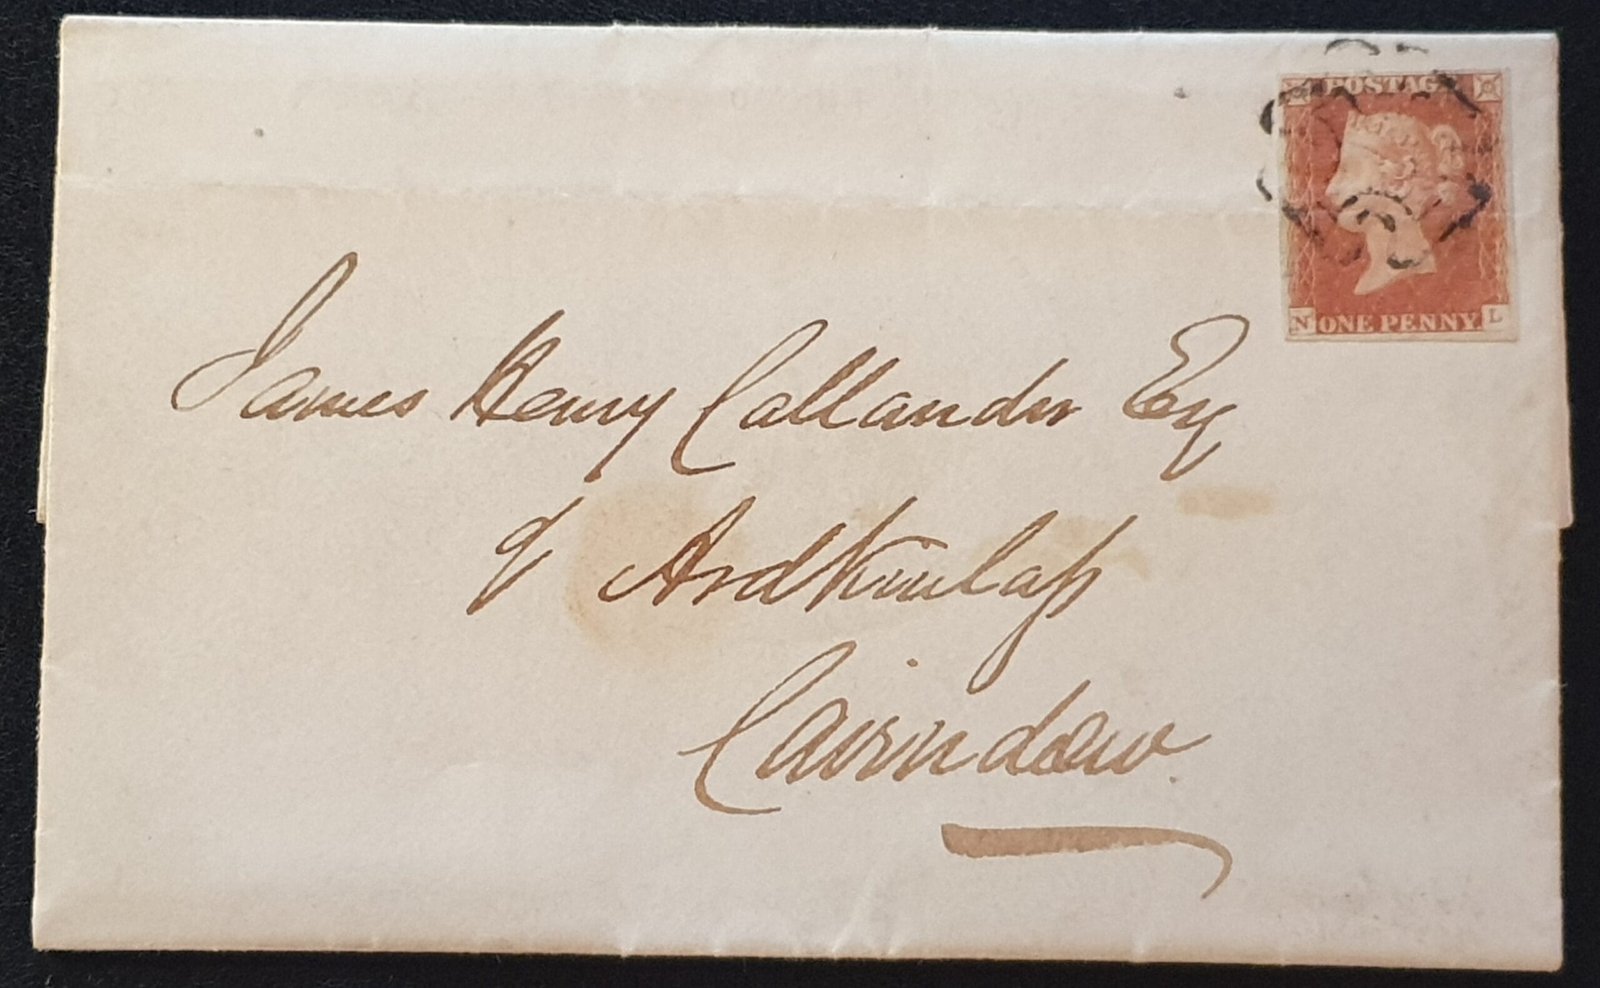 POSTAGE
N ONE PENNY L
James Henry Callander Esq
of Ardkinlass
Cairndow